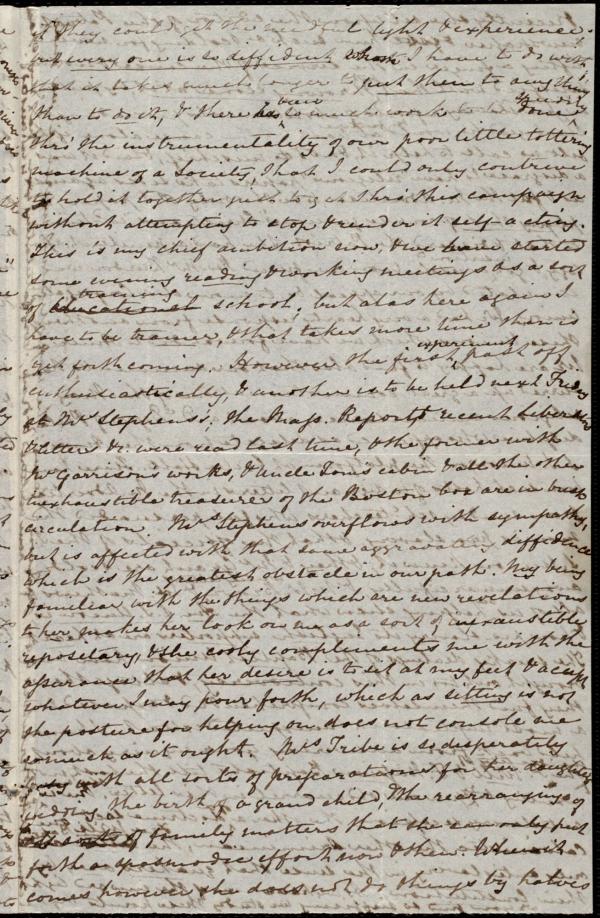 if they could get the needful light & experience.
but every one is so diffident whom I have to do with
that it takes much longer to put them to anything
than to do it, & there has been so much work to be done speedily
thro' the instrumentality of our poor little tottering
machine of a Society, that I could only contrive
to hold it together just to get thro' this campaign
without attempting to stop & render it self-acting.
This is my chief ambition now, & we have started
some evening reading & working meetings as a sort
of educational training school, but alas here again I
have to be trainer, & that takes more time than is
yet forthcoming. However the first experiment past off
enthusiastically, & another is to be held next Friday
at Mrs Stephens's. The Mass. Report & recent Liberators
& letters &c were read last time, & the former with
Mr Garrison's works, & Uncle Tom's cabin & all the other
inexhaustible treasures of the Boston box are in brisk
circulation. Mrs Stephens overflows with sympathy,
but is affected with that same aggravating diffidence
which is the greatest obstacle in our path. My being
familiar with the things which are new revelations
to her, makes her look on me as a sort of inexaustible
reposetary, & she cooly compliments me with the
assurance that her desire is to sit at my feet & accept
whatever I may pour forth, which as sitting is not
the posture for helping on does not console me
so much as it ought. Mrs Tribe is so desperately
busy with all sorts of preparations for her daughter's
wedding, the birth of a grand child, & the rearranging of
all sorts of family matters that she can only put
forth a spasmodic effort now & then. When it
comes however she does not do things by halves